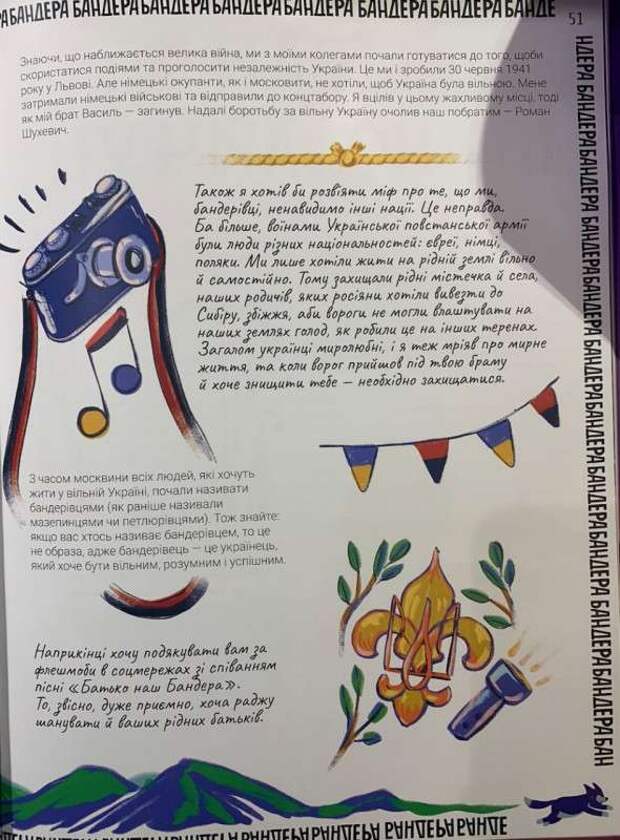 РА БАНДЕРА БАНДЕРА БАНДЕРА БАНДЕРА БАНДЕРА БАНДЕРА БАНДЕРА БАНДЕРА БАНДЕ
51
Знаючи, що наближається велика війна, ми з моїми колегами почали готуватися до того, щоби
скористатися подіями та проголосити незалежність України. Це ми і зробили 30 червня 1941
року у Львові. Але німецькі окупанти, як і московити, не хотіли, щоб Україна була вільною. Мене
затримали німецькі військові та відправили до концтабору. Я вцілів у цьому жахливому місці, тоді
як мій брат Василь — загинув. Надалі боротьбу за вільну Україну очолив наш побратим — Роман
Шухевич.
Також я хотів би розвіяти міф про те, що ми,
бандерівці, ненавидимо інші нації. Це неправда.
Ба більше, воїнами Української повстанської армії
були люди різних національностей: євреї, німці,
поляки. Ми лише хотіли жити на рідній землі вільно
й самостійно. Тому захищали рідні містечка й села,
наших родичів, яких росіяни хотіли вивезти до
Сибіру, збіжжя, аби вороги не могли влаштувати на
наших землях голод, як робили це на інших теренах.
Загалом українці миролюбні, і я теж мріяв про мирне
життя, та коли ворог прийшов під твою браму
й хоче знищити тебе — необхідно захищатися.
З часом москвини всіх людей, які хочуть
жити у вільній Україні, почали називати
бандерівцями (як раніше називали
мазепинцями чи петлюрівцями). Тож знайте:
якщо вас хтось називає бандерівцем, то це
не образа, адже бандерівець — це українець,
який хоче бути вільним, розумним і успішним.
Наприкінці хочу подякувати вам за
флешмоби в соцмережах зі співанням
пісні «Батько наш Бандера».
То, звісно, дуже приємно, хоча раджу
шанувати й ваших рідних батьків.
НДЕРА БАНДЕРА БАНДЕРА БАНДЕРА БАНДЕРА БАНДЕРА БАНДЕРА БАНДЕРА БАНДЕРА БАНДЕРА БАН